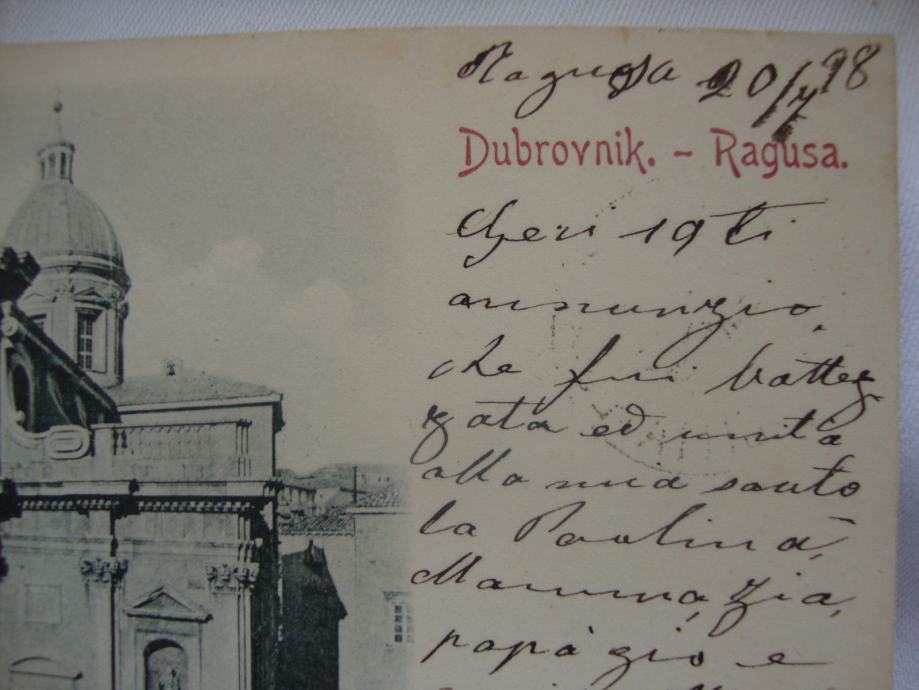 Ragusa 20/7 98
Dubrovnik. - Ragusa.
Cheri 19 ti
annunzio,
che fui battez
zata ed unita
alla mia santo
la Paolina,
Mamma, Zia,
papà gió e